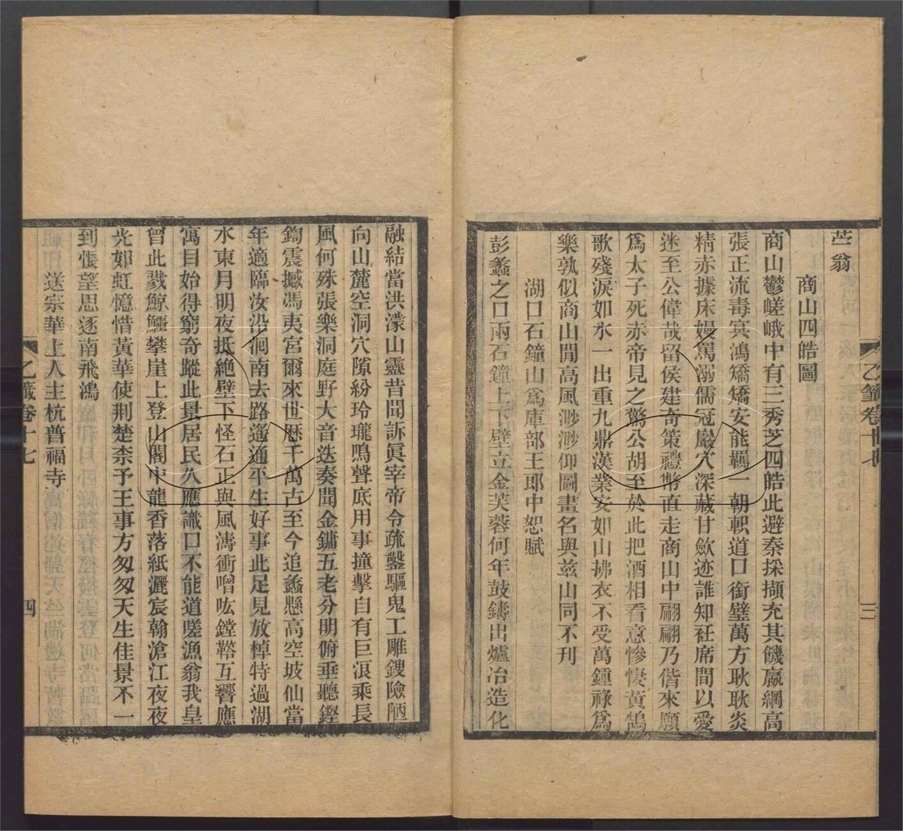 苎翁
商山四皓圖
商山鬱嵯峨中有三秀芝四皓此避秦採擷充其饑嬴網高
張正流毒寞鴻矯矯安能羈一朝軹道口銜璧萬方耿耿炎
精赤據床嫚罵溺儒冠巖穴深藏甘斂迹誰知祍席間以愛
迷至公偉哉留侯建奇策禮幣直走商山中翩翩乃偕來願
爲太子死赤帝見之驚公胡至於此把酒相看意慘悽黃鵠
歌殘淚如水一出重九鼎漢業安如山拂衣不受萬鍾祿爲
樂孰似商山閒高風渺渺仰圖畫名與兹山同不刊
湖口石鐘山爲庫部王郎中恕賦
彭蠡之口兩石鐘上下壁立金芙蓉何年鼓鑄出爐冶造化
乙籤卷十七
三
融結當洪濛山靈昔聞訴眞宰帝令疏鑿驅鬼工雕鎪險陋
向山麓空洞穴隙紛玲瓏鳴聲底用事撞擊自有巨浪乘長
風何殊張樂洞庭野大音迭奏聞金鏞五老分明俯垂聽鏗
鍧震撼馮夷宮爾來世歷千萬古至今追蠡懸高空坡仙當
年適臨汝沿洄南去路遙通平生好事此足見放棹特過湖
水東月明夜抵絶壁下怪石正與風濤衝噌吰鏜鞳互響應
寓目始得窮奇蹤此景居民久應識口不能道嗟漁翁我皇
曾此戮鯨鱷攀崖上登山閣中龍香落紙灑宸翰滄江夜夜
光如虹憶惜黃華使荆楚柰予王事方匆匆天生佳景不一
到悵望思逐南飛鴻
送宗華上人主杭普福寺
乙籤卷十七
四